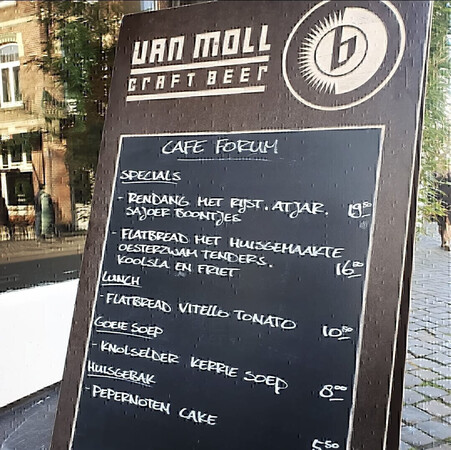 VAN MOLL
CRAFT BEER
b
CAFE FORUM
SPECIALS
- RENDANG MET RIJST. ATJAR. 19.50
SAJOER BOONTJES
- FLATBREAD MET HUISGEMAAKTE
OESTERZWAM TENDERS.
KOOLSLA EN FRIET 16.00
LUNCH
- FLATBREAD VITELLO TOMATO 10.50
GOEIE SOEP
- KNOLSELDER KERRIE SOEP 8.00
HUISGEBAK
- PEPERNOTEN CAKE
5.50